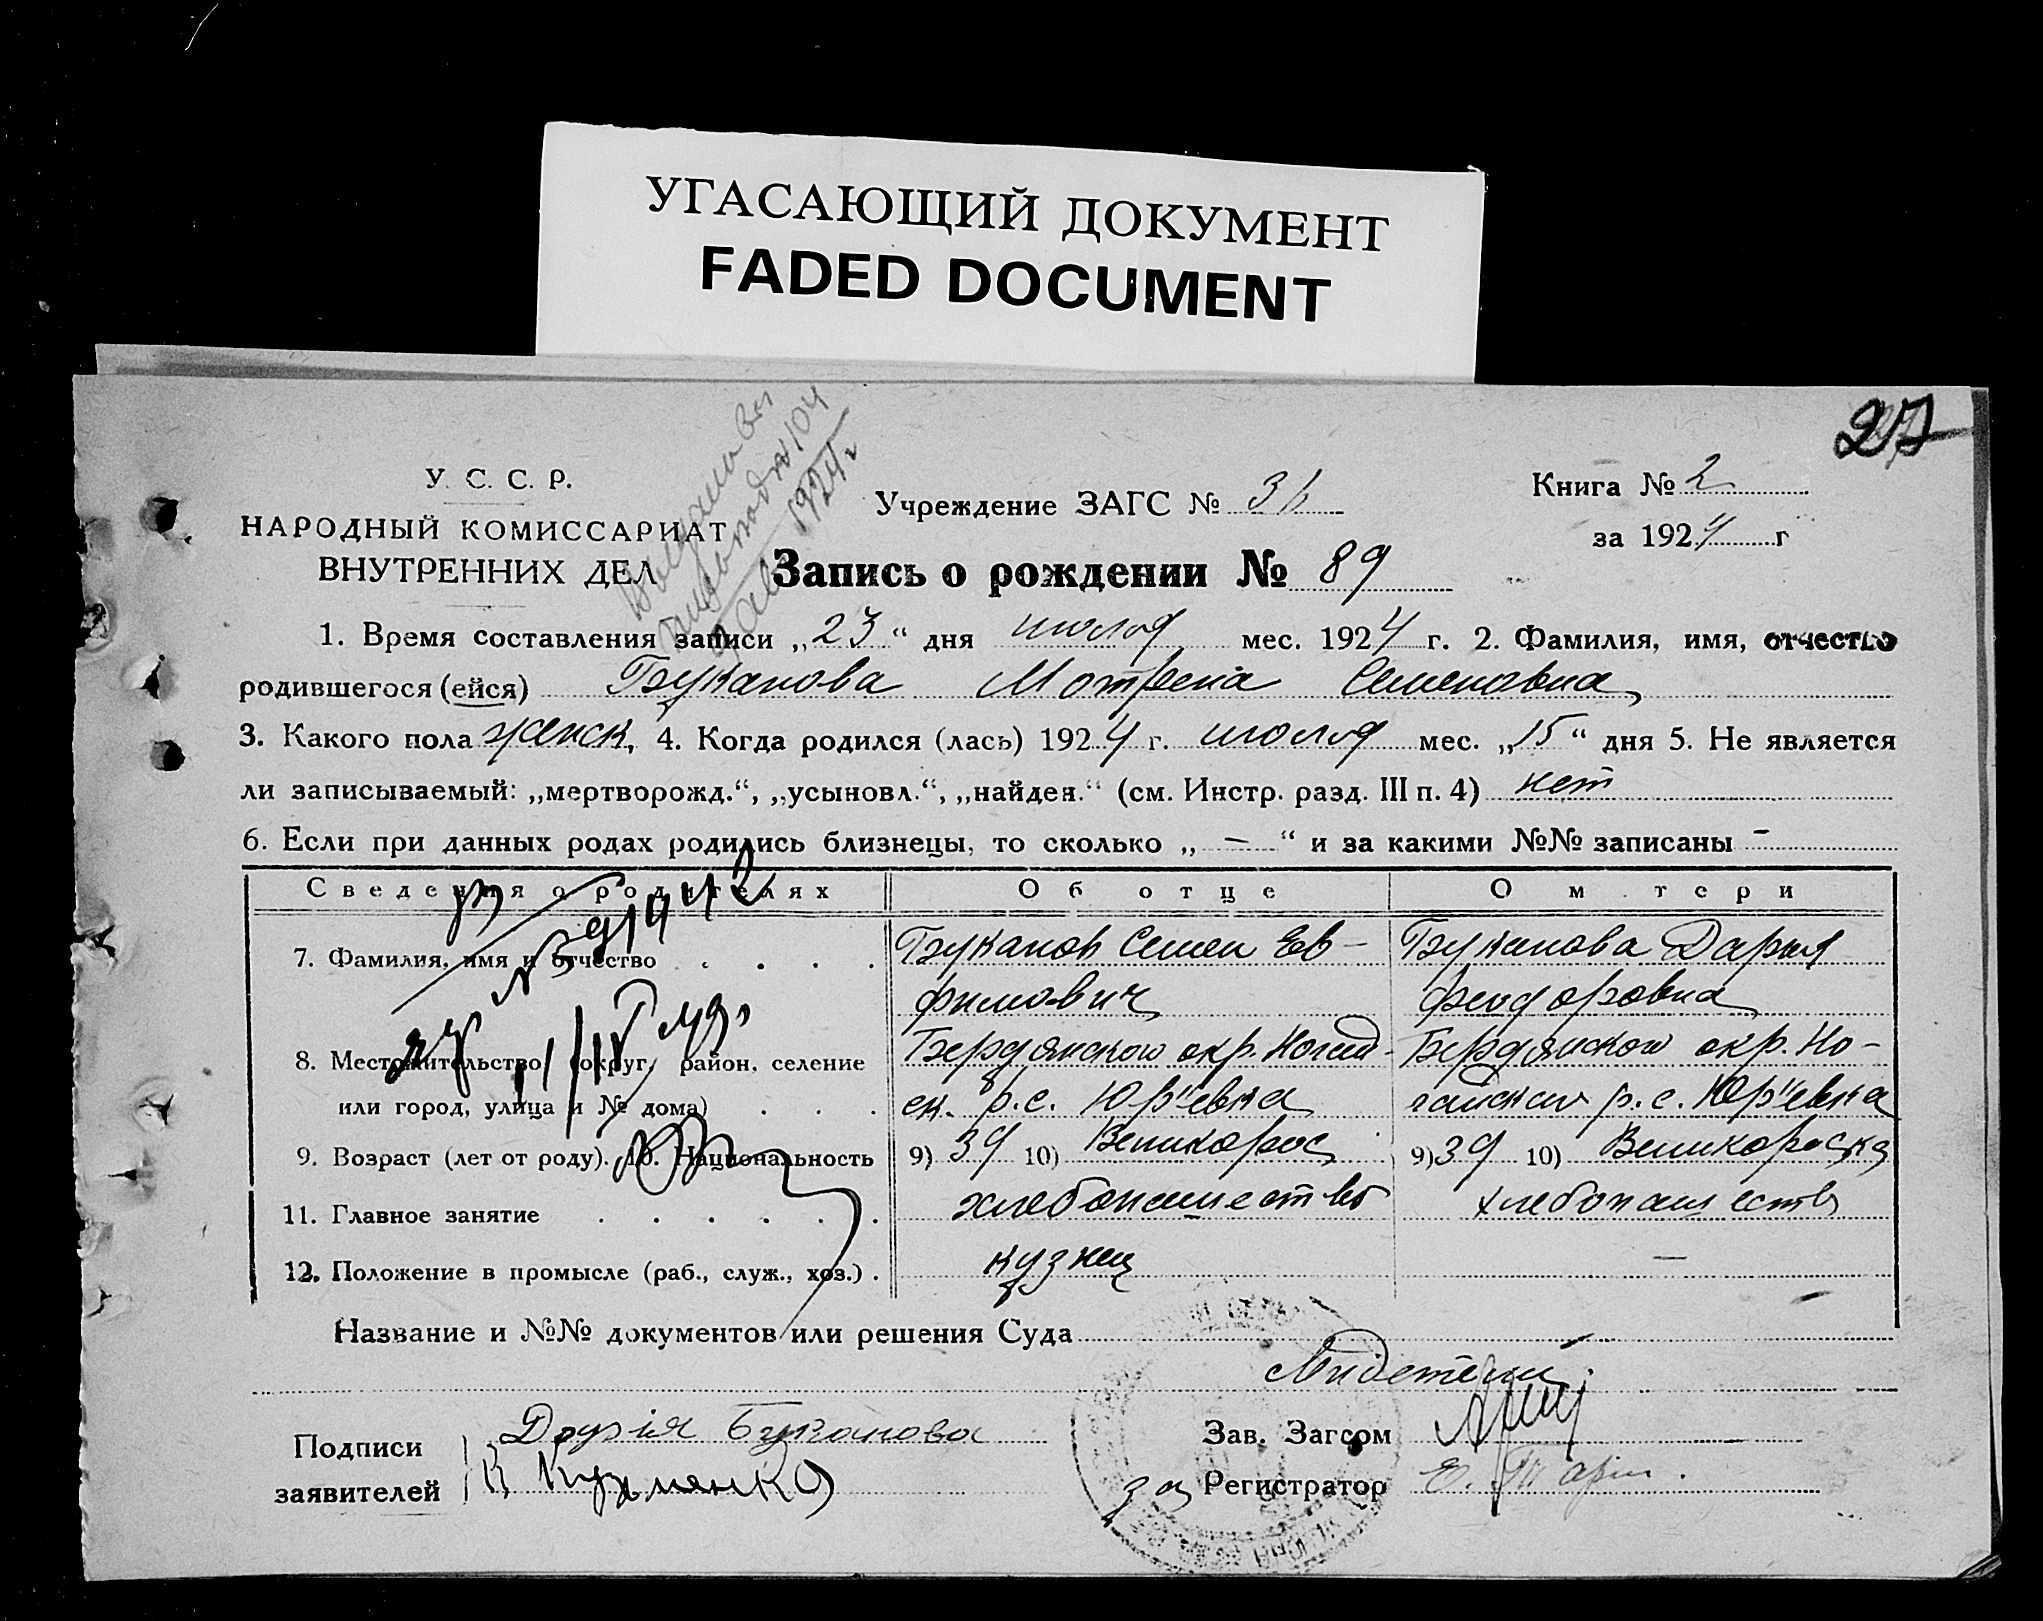 УГАСАЮЩИЙ ДОКУМЕНТ
FADED DOCUMENT
27
У. С. С. Р.
НАРОДНЫЙ КОМИССАРИАТ
ВНУТРЕННИХ ДЕЛ
1924 г
Учреждение ЗАГС №
Книга № 2
за 1924 г
Запись о рождении № 89
1. Время составления записи „23“ дня июля мес. 1924 г. 2. Фамилия, имя, отчество
родившегося (ейся) Буканова Мотрена Семеновна
3. Какого пола женск, 4. Когда родился (лась) 1924 г. июля мес. „15“ дня 5. Не является
ли записываемый: „мертворожд.“, „усыновл.“, „найден.“ (см. Инстр. разд. III п. 4) нет
6. Если при данных родах родились близнецы, то сколько „ — “ и за какими №№ записаны —
Сведения о родителях Об отце О м тери
7. Фамилия, имя и отчество . . . . Буканов Семен Ев- Буканова Дарья
фимович Феодоровна
8. Местожительство (округ, район, селение Бердянского окр. Ногай- Бердянского окр. Но-
или город, улица и № дома) . . . ск. р. с. Юр"евка гайского р. с. Юр"евка
9. Возраст (лет от роду). 10. Национальность 9) 39 10) Великорос 9) 39 10) Великороска
11. Главное занятие . . . . . . хлебопашество хлебопашеств
12. Положение в промысле (раб., служ., хоз.) . кузнец —
Название и №№ документов или решения Суда
Подписи Буканова
заявителей
Зав. Загсом
за Регистратор